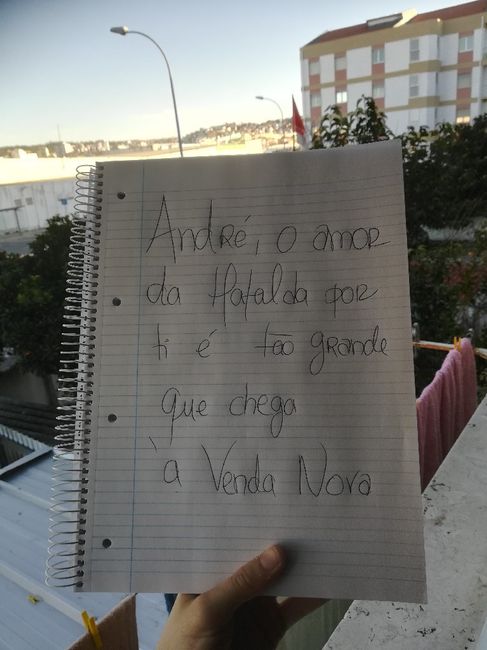 André, o amor
da Mafalda por
ti é tão grande
que chega
à Venda Nova